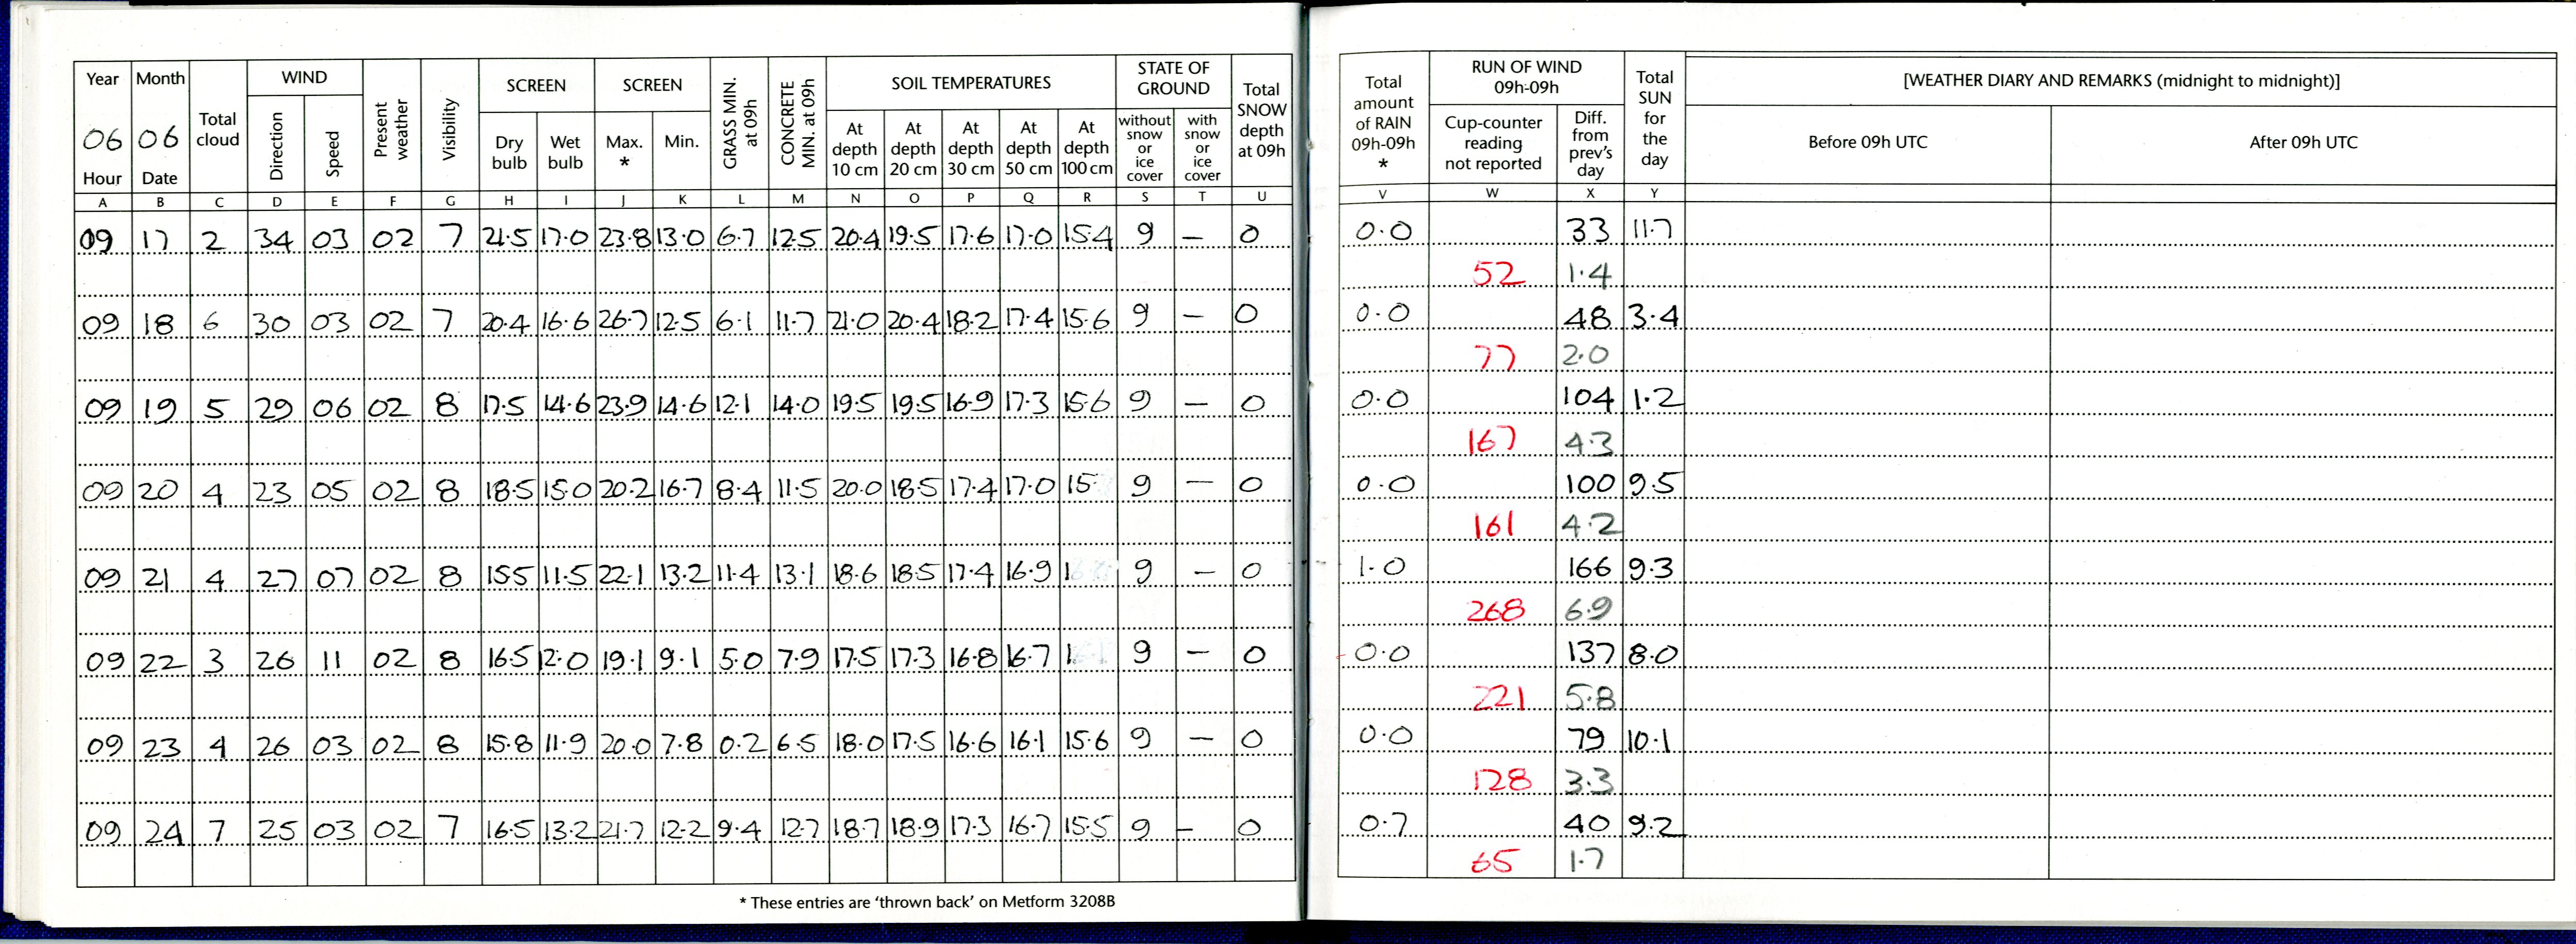 Year Month Total cloud WIND Present weather Visibility SCREEN SCREEN GRASS MIN. at 09h CONCRETE MIN. at 09h SOIL TEMPERATURES STATE OF GROUND Total SNOW depth at 09h
06 06 Direction Speed Dry bulb Wet bulb Max. * Min. At depth 10 cm At depth 20 cm At depth 30 cm At depth 50 cm At depth 100 cm without snow or ice cover with snow or ice cover
Hour Date
A B C D E F G H I J K L M N O P Q R S T U
09 17 2 34 03 02 7 21.5 17.0 23.8 13.0 6.7 12.5 20.4 19.5 17.6 17.0 15.4 9 – 0
09 18 6 30 03 02 7 20.4 16.6 26.7 12.5 6.1 11.7 21.0 20.4 18.2 17.4 15.6 9 – 0
09 19 5 29 06 02 8 17.5 14.6 23.9 14.6 12.1 14.0 19.5 19.5 16.9 17.3 15.6 9 – 0
09 20 4 23 05 02 8 18.5 15.0 20.2 16.7 8.4 11.5 20.0 18.5 17.4 17.0 15. 9 – 0
09 21 4 27 07 02 8 15.5 11.5 22.1 13.2 11.4 13.1 18.6 18.5 17.4 16.9 9 – 0
09 22 3 26 11 02 8 16.5 12.0 19.1 9.1 5.0 7.9 17.5 17.3 16.8 16.7 9 – 0
09 23 4 26 03 02 8 15.8 11.9 20.0 7.8 0.2 6.5 18.0 17.5 16.6 16.1 15.6 9 – 0
09 24 7 25 03 02 7 16.5 13.2 21.7 12.2 9.4 12.7 18.7 18.9 17.3 16.7 15.5 9 – 0
* These entries are ‘thrown back’ on Metform 3208B
Total amount of RAIN 09h-09h * RUN OF WIND 09h-09h Total SUN for the day [WEATHER DIARY AND REMARKS (midnight to midnight)]
Cup-counter reading not reported Diff. from prev's day Before 09h UTC After 09h UTC
V W X Y
0.0 33 11.7
52 1.4
0.0 48 3.4
77 2.0
0.0 104 1.2
167 4.3
0.0 100 9.5
161 4.2
1.0 166 9.3
268 6.9
0.0 137 8.0
221 5.8
0.0 79 10.1
128 3.3
0.7 40 9.2
65 1.7